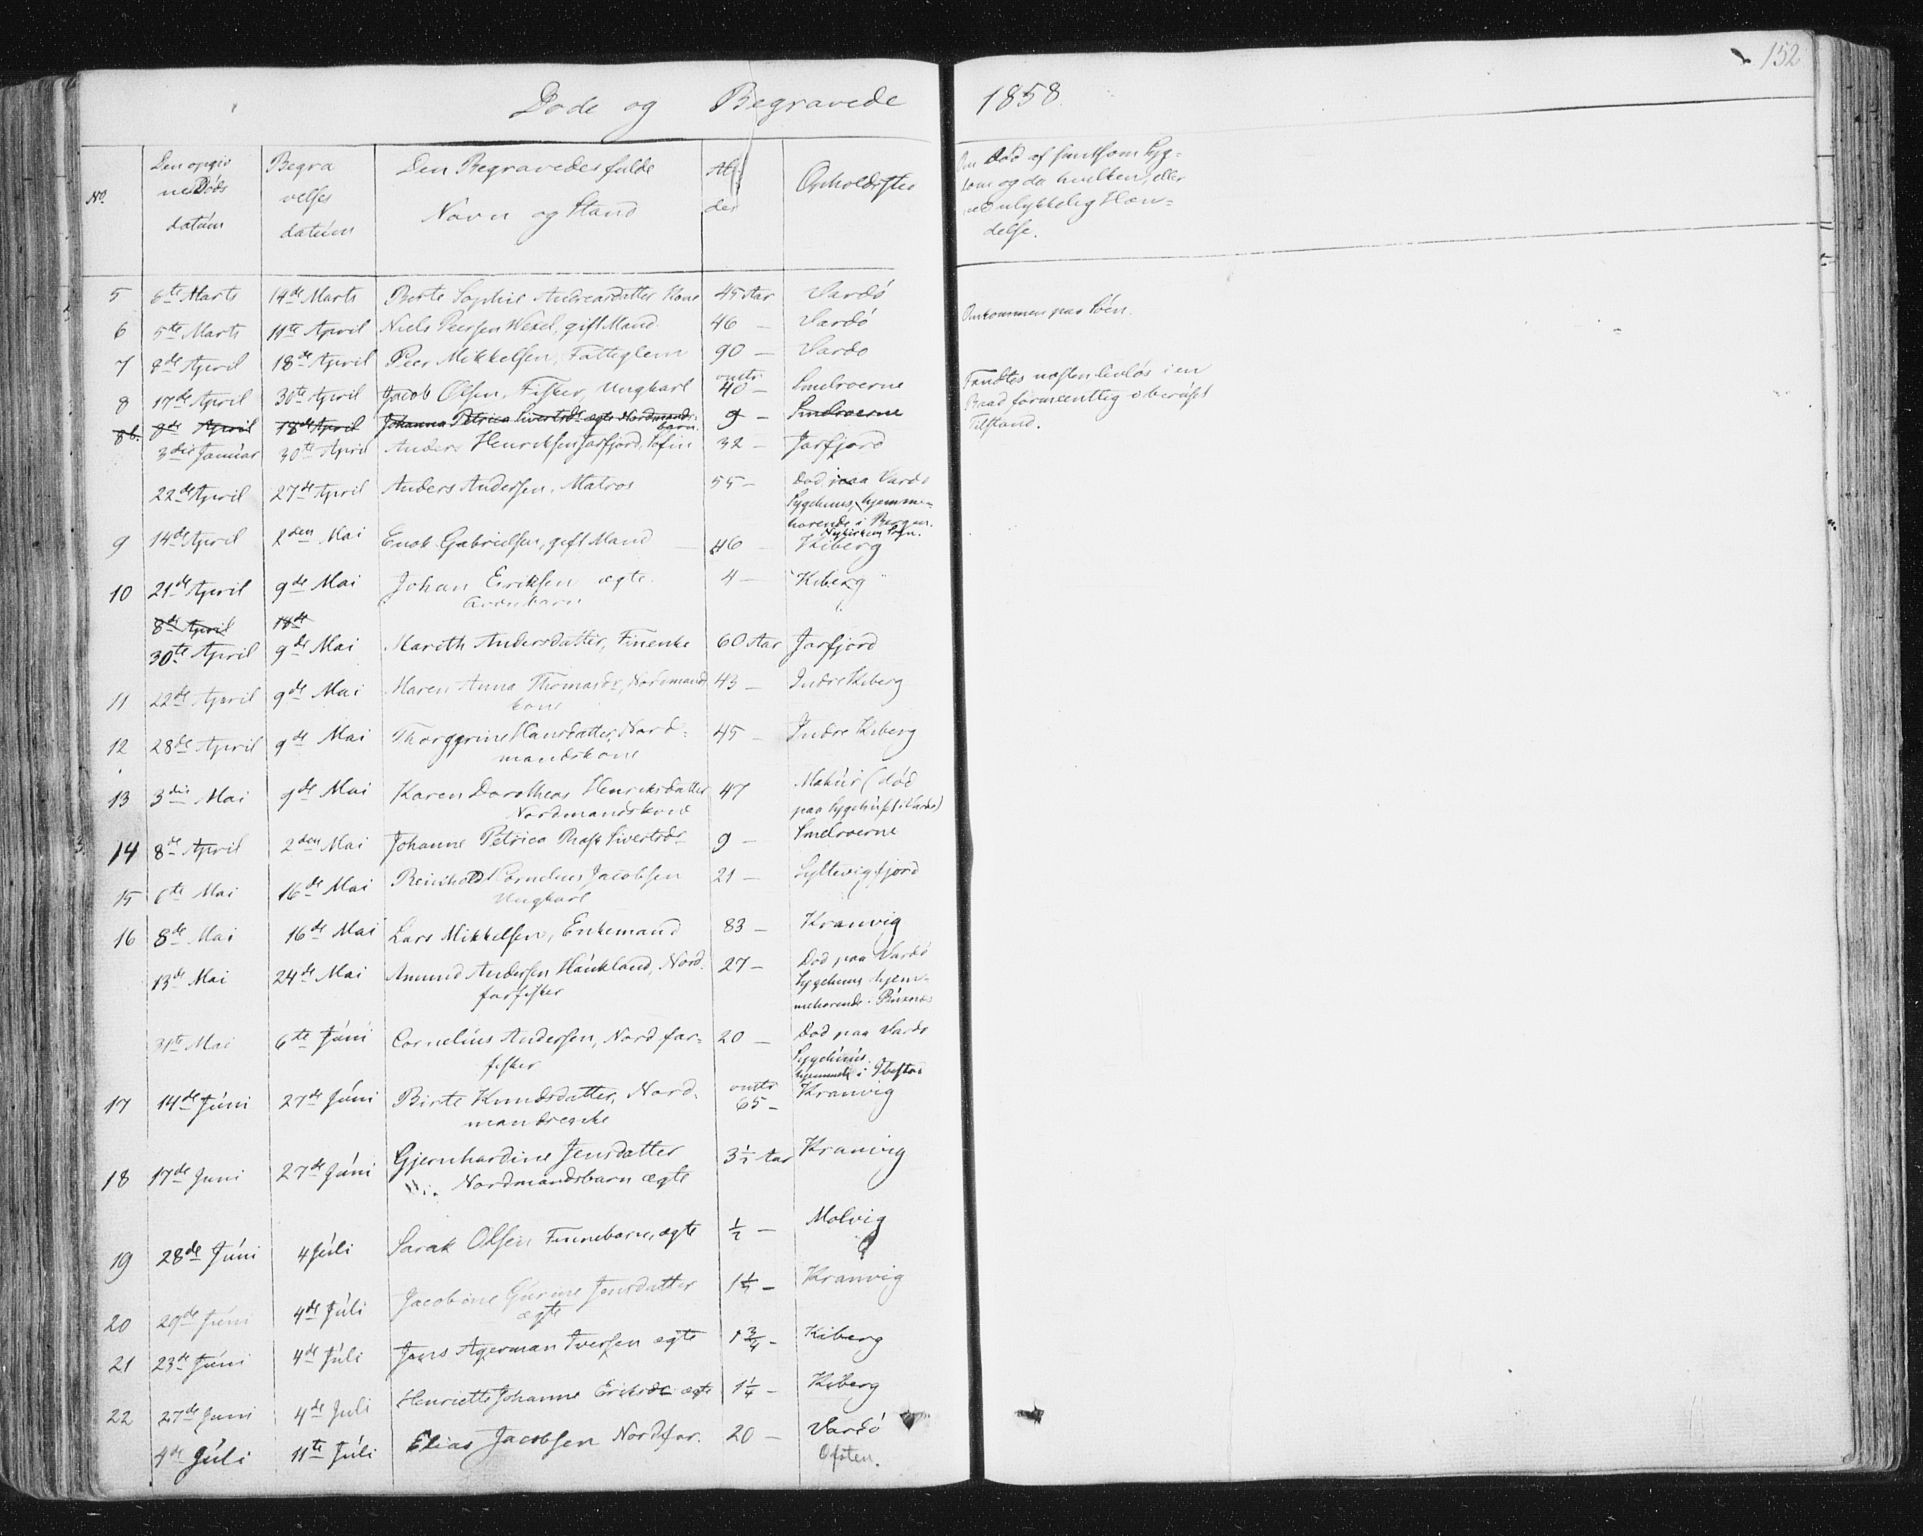 152
Døde og Begravede 1858
No.
Den opgiv
ne Døds
datum
Begra
velses
datum
Den Begravedes fulde
Navn og Stand
Al
der
Opholdssted
Om Død af smitsom Syg-
dom og da hvilken, eller
ved ulykkelig Hæn-
delse.
5 6te Marts 14de Marts Birte Sophie Andreasdatter Kone 45 Aar Vardö
6 5te Marts 11te April Niels Peersen Wexel, gift Mand 46 — Vardö Omkommen paa Söen.
7 8de April 18de April Peer Mikkelsen, Fattiglem 90 — Vardö
8 17de April 30te April Jacob Olsen, Fisker, Ungkarl omtr 40 — Smelroerne Fandtes næsten livlös i en
Baad formentlig i beruset
Tilstand.
8b. 8de April 18de April Johanna Petrica Sivertsdr ægte Nordmands-
barn. 9 — Smelroerne
3die Januar 30te April Anders Henriksen Jarfjord, Söfin 32 — Jarfjord
22de April 27de April Anders Andersen, Matros 55 — Död paa Vardö
Sygehuus, hjemme-
hørende i Bergen.
Nykirkens Sogn.
9 14de April 2den Mai Enok Gabrielsen, gift Mand 46 — Kiberg
10 21de April 9de Mai Johan Eriksen ægte 4 — Kiberg
8de April 18de
30te April 9de Mai Mareth Andersdatter, Finenke 60 Aar Jarfjord
11 22de April 9de Mai Maren Anna Thomasdr, Nordmands
kone 43 — Indre Kiberg
12 28de April 9de Mai Thorggrine Hansdatter, Nord-
mandskone 45 — Indre Kiberg
13 3die Mai 9de Mai Karen Dorothea Henriksdatter
Nordmandskone 47 Makür (död
paa Sygehuset i Vardö)
14 8de April 2den Mai Johanne Petrica Sivertsdr 9 — Smelroerne
15 6te Mai 16de Mai Reinholdt Cornelius Jacobsen
Ungkarl 21 — Syltevigfjord
16 8de Mai 16de Mai Lars Mikkelsen, Enkemand 83 — Kramvig
13de Mai 24de Mai Amund Andersen Haukland, Nord-
farfisker 27 — Död paa Vardö
Sygehuus hjem-
mehørende i Buxnæs
31te Mai 6te Juni Cornelius Andersen, Nordfar-
fisker 20 — Död paa Vardö
Sygehuus.
hjemmeh i Ibestad
17 14de Juni 27de Juni Birte Knudsdatter, Nord-
mandsenke omtr 65 — Kramvig
18 17de Juni 27de Juni Gjernhardine Jensdatter
Nordmandsbarn ægte 3½ Aar Kramvig
19 28de Juni 4 Juli Sarak Olsen Finnebarn, ægte ½ — Molvig
20 29de Juni 4de Juli Jacobine Gurine Jensdatter
ægte 1¼ — Kramvig
21 23de Juni 4de Juli Jens Agerman Iversen ægte 1¾ — Kiberg
22 27de Juni 4de Juli Henriette Johanne Eriksdr ægte 1¼ — Kiberg
4de Juli 11te Juli Elias Jacobsen Nordfar. 20 — Vardö
Ofoten.